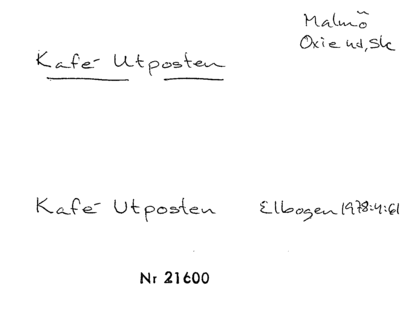 Malmö
Oxie hd, Sk
Kafé Utposten
Kafé Utposten Elbogen 1978:4:61
Nr 21600